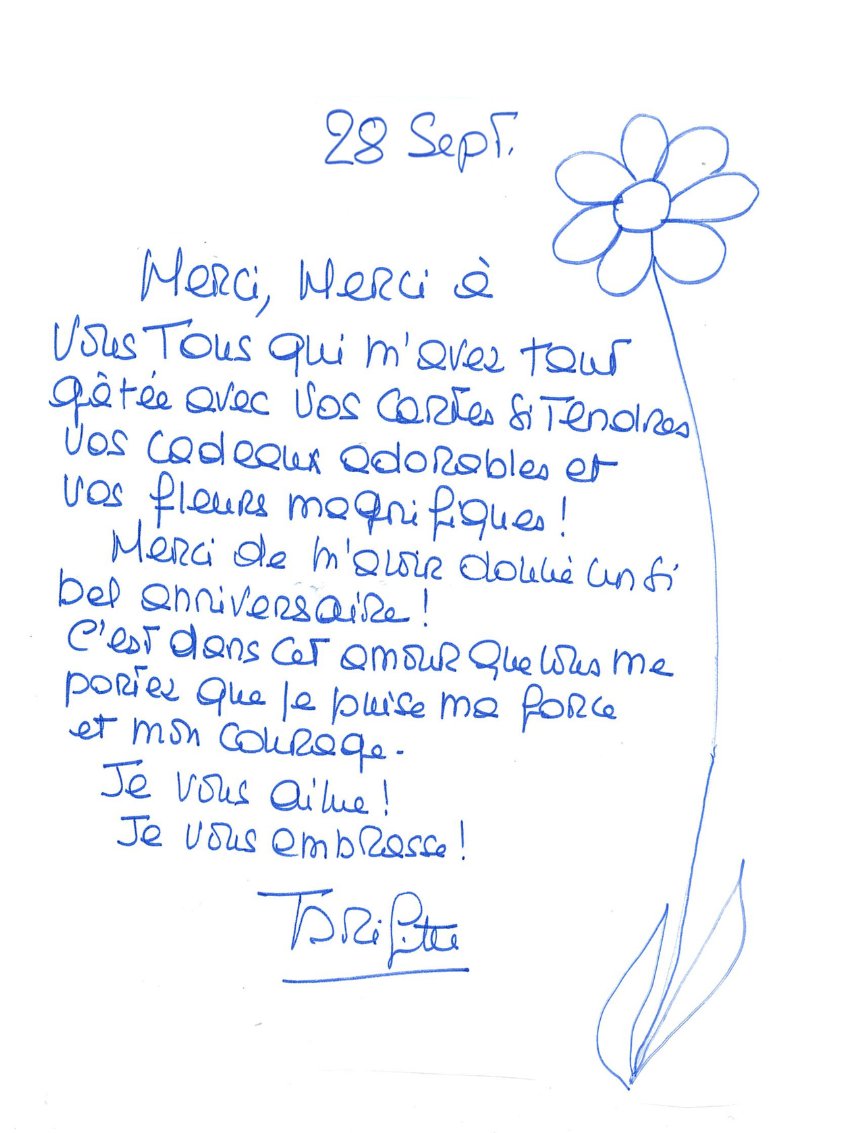 28 Sept.
Merci, Merci à
Vous Tous qui m'avez tant
gâtée avec vos cartes si Tendres
vos cadeaux adorables et
vos fleurs magnifiques !
Merci de m'avoir donné un si
bel anniversaire !
C'est dans cet amour que vous me
portez que je puise ma force
et mon courage.
Je vous aime !
Je vous embrasse !
Brigitte